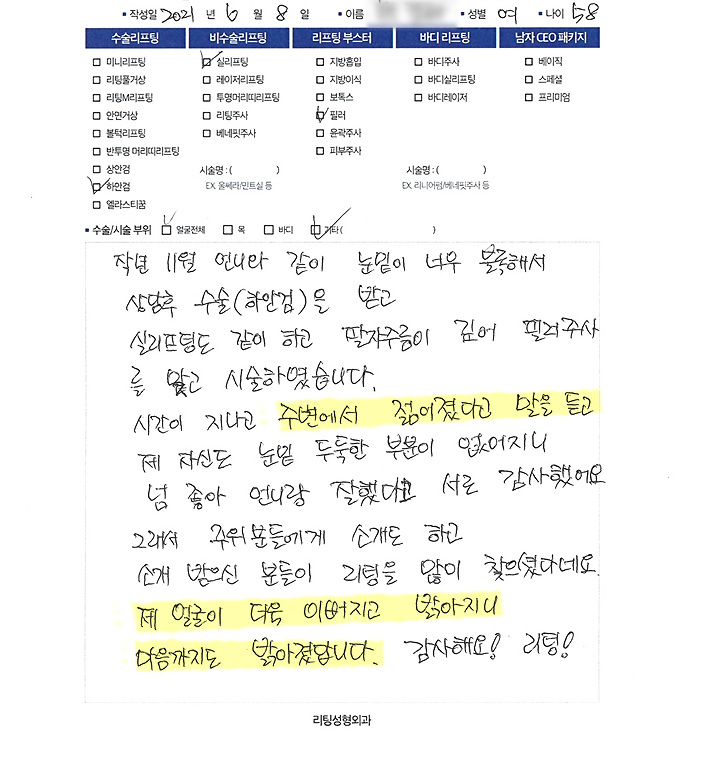 ▪ 작성일 2021 년 6 월 8 일 ▪ 이름 ▪ 성별 여 ▪ 나이 58
수술리프팅 비수술리프팅 리프팅 부스터 바디 리프팅 남자 CEO 패키지
미니리프팅 실리프팅 지방흡입 바디주사 베이직
리팅풀거상 레이저리프팅 지방이식 바디실리프팅 스페셜
리팅M리프팅 투명머리띠리프팅 보톡스 바디레이저 프리미엄
안면거상 리팅주사 필러
볼턱리프팅 베네핏주사 윤곽주사
반투명 머리띠리프팅 피부주사
상안검 시술명 : ( ) 시술명 : ( )
하안검 EX. 울쎄라/민트실 등 EX. 리니어펌/베네핏주사 등
엘라스티꿈
▪ 수술/시술 부위 얼굴전체 목 바디 기타 ( )
작년 11월 언니와 같이 눈밑이 너무 불룩해서
상담후 수술(하안검)을 받고
실리프팅도 같이 하고 팔자주름이 깊어 필러주사
를 맞고 시술하였습니다.
시간이 지나고 주변에서 젊어졌다고 말을 듣고
제 자신도 눈밑 두둑한 부분이 없어지니
넘 좋아 언니랑 잘했다고 서로 감사했어요
그래서 주위분들에게 소개도 하고
소개 받으신 분들이 리팅을 많이 찾으셨다네요.
제 얼굴이 더욱 이뻐지고 밝아지니
마음까지도 밝아졌답니다. 감사해요! 리팅!
리팅성형외과